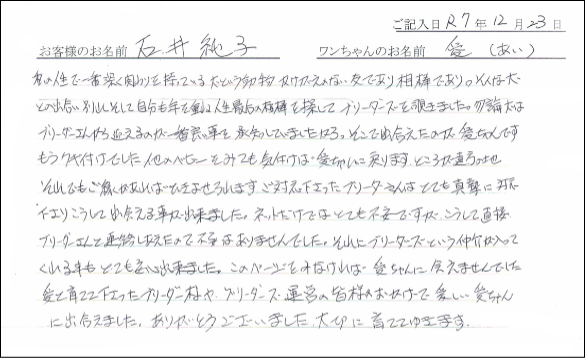 ご記入日 R7年12月23日
お客様のお名前 石井純子 ワンちゃんのお名前 愛(あい)
私の人生で一番深く関りを持っている犬という動物 かけがえのない友であり相棒であり。そんな犬
との出会い別れ そして自分も年を重ね人生最后の相棒を探してブリーダーズを覗きました。勿論犬は
ブリーダーさんから迎えるのが一番良い事を承知していましたから。そこで出会えたのが愛ちゃんです
もう釘付けでした 他のベビーをみても気付けば愛ちゃんに戻ります ところが遠方のせ
それでもご縁があればひきよせられます ご対応下さったブリーダーさんはとても真摯に対応
下さりこうして出会える事が出来ました。ネットだけではとても不安ですが、こうして直接
ブリーダーさんと連絡しあえたので不安はありませんでした。それにブリーダーズという仲介が入って
くれる事もとても安心出来ました。このページをみなければ愛ちゃんに会えませんでした
愛を育てて下さったブリーダー様や、ブリーダーズ運営の皆様のおかげで愛しい愛ちゃん
に出会えました。ありがとうございました 大切に育ててゆきます.